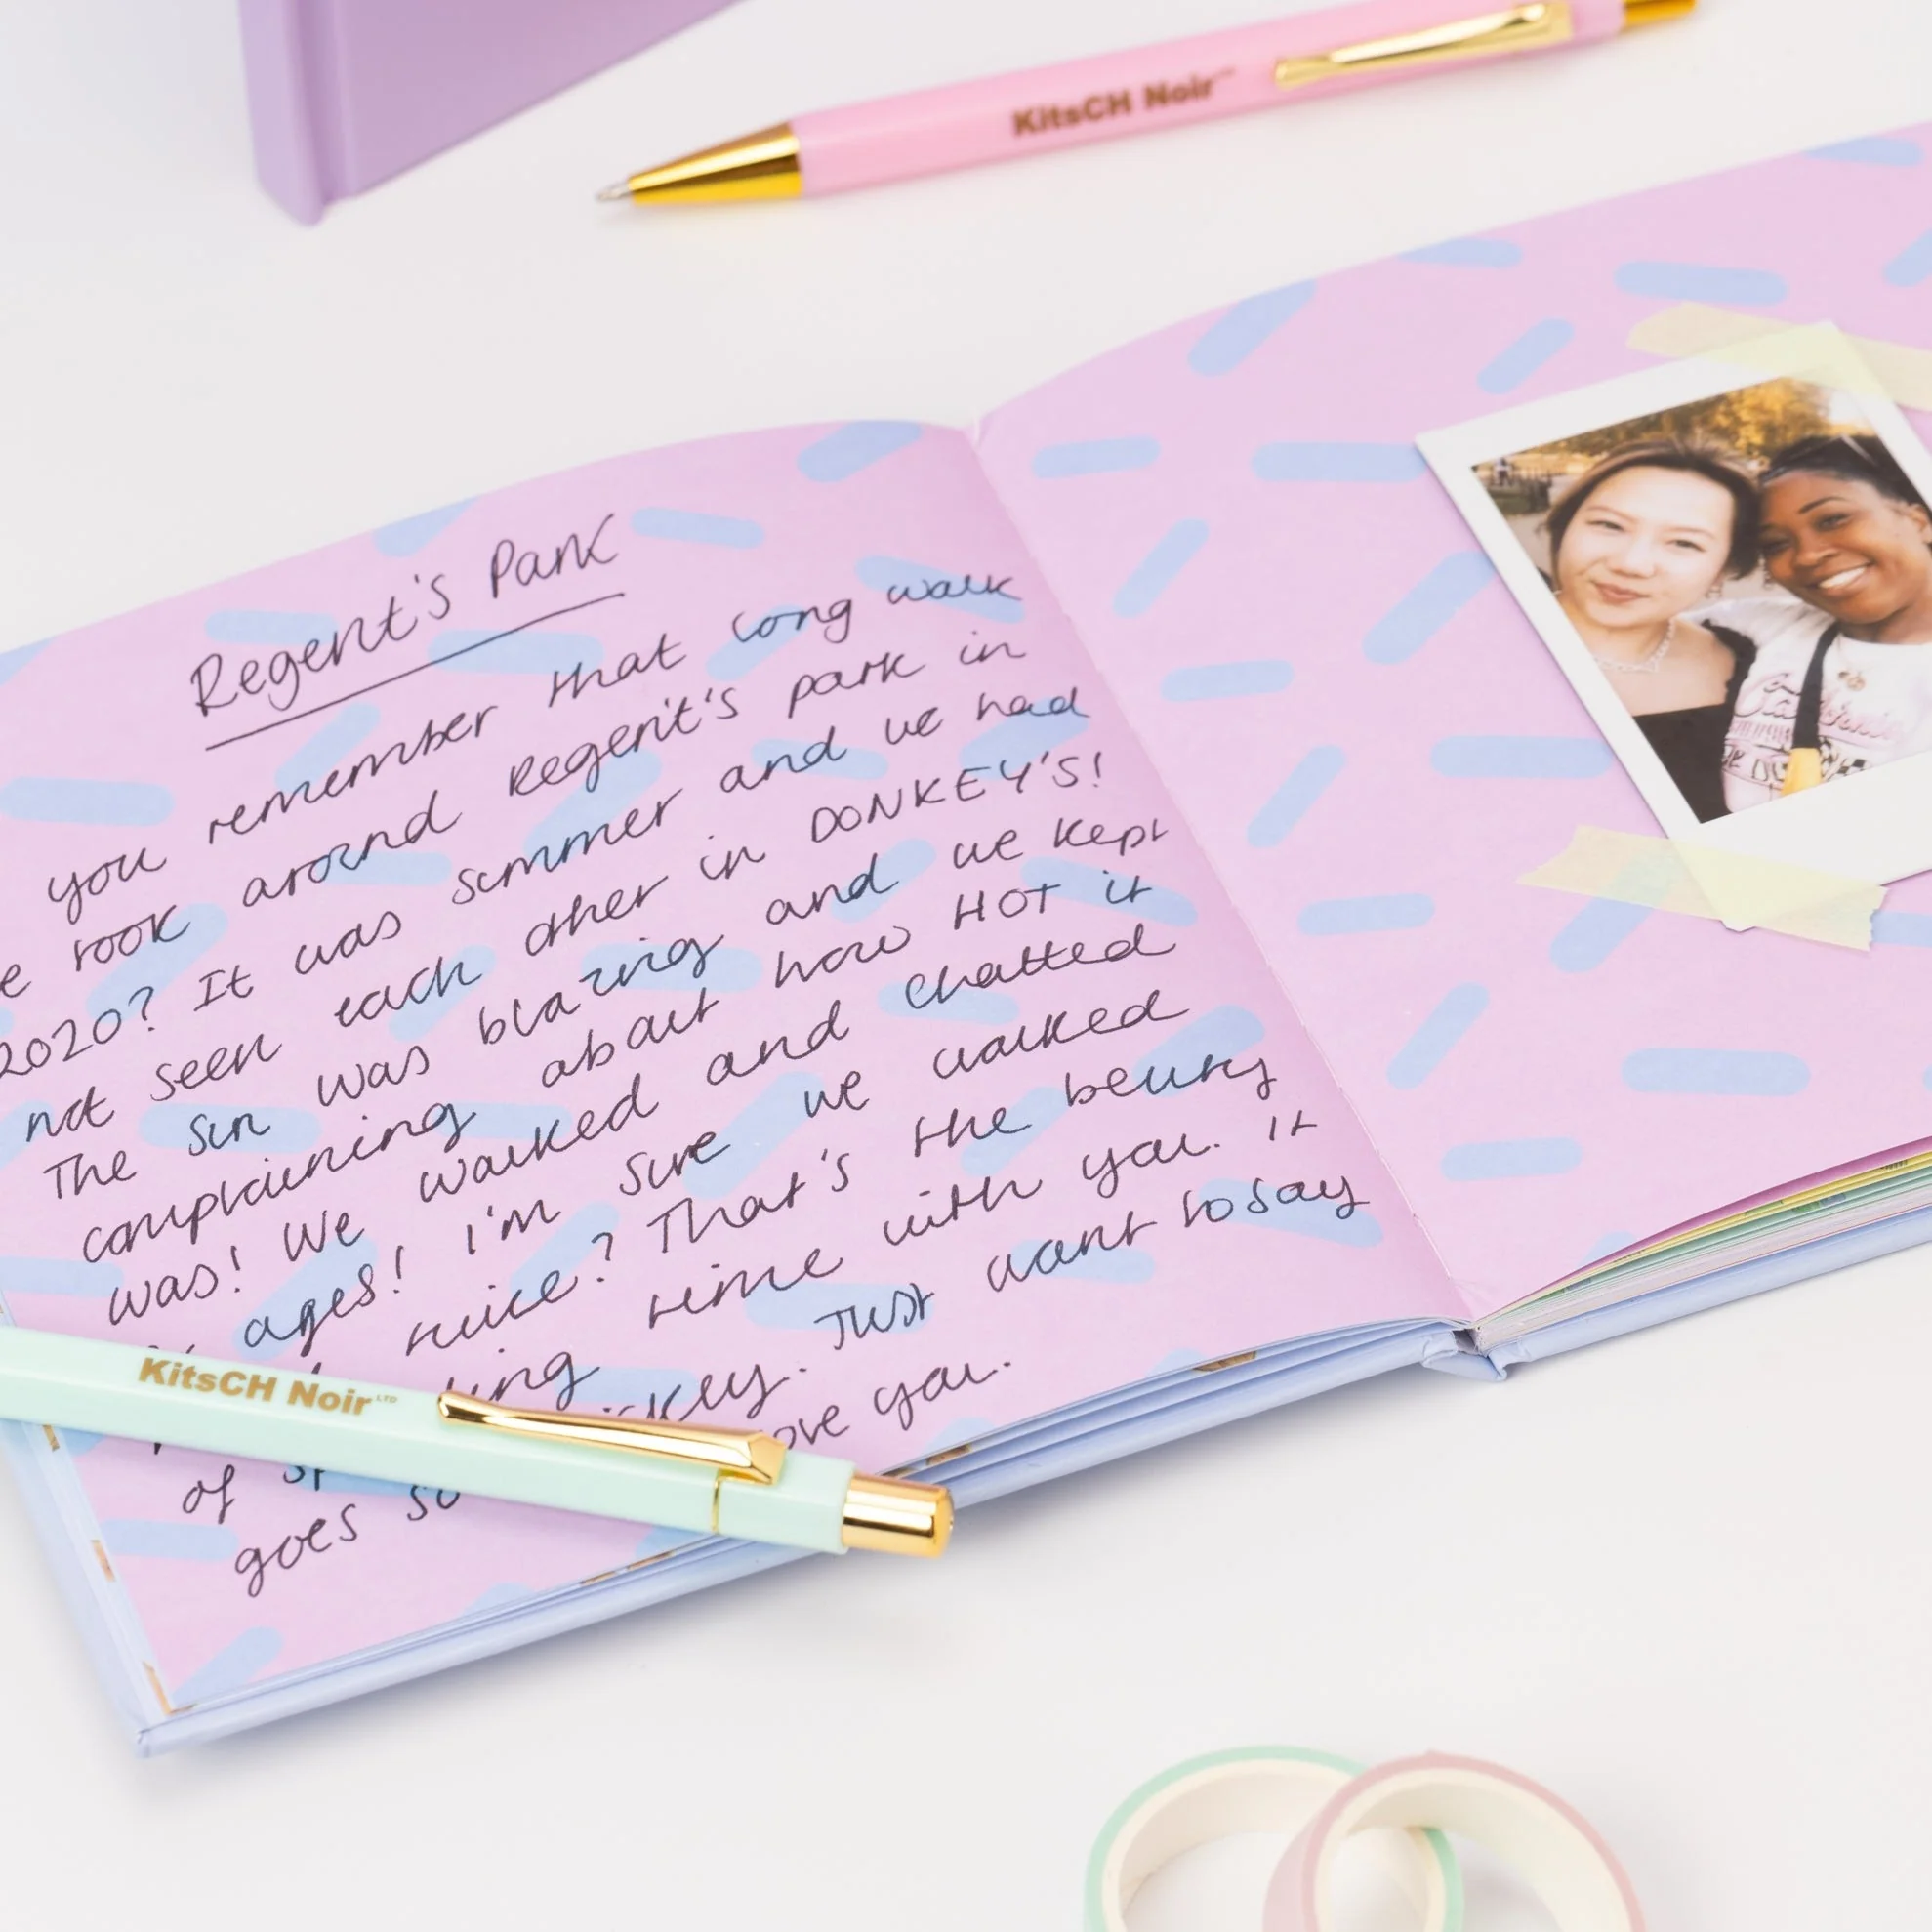 KitsCH Noir
Regent's Park
you remember that long walk
took around Regent's park in
2020? It was summer and we had
not seen each other in DONKEY'S!
The sun was blazing and we kept
complaining about how HOT it
was! We walked and chatted
ages! I'm sure we walked
twice? That's the beauty
time with you. It
of
goes so
Just want to say
you.
KitsCH Noir LTD